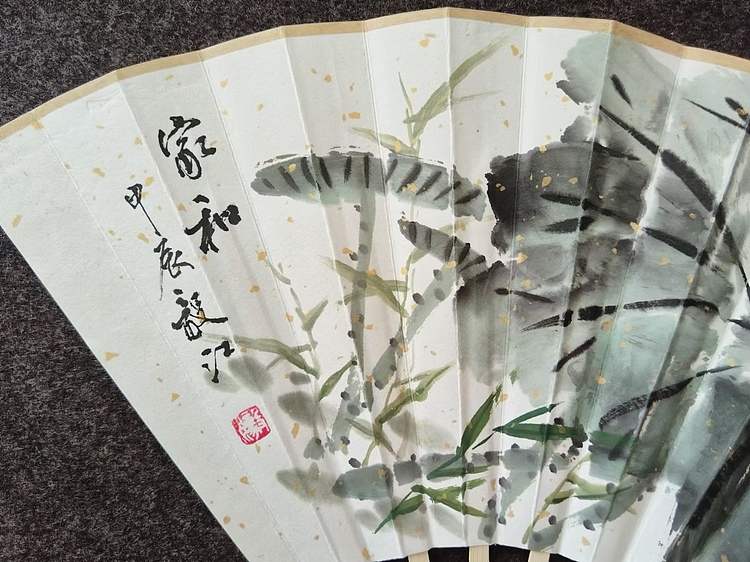 家和
甲辰
江